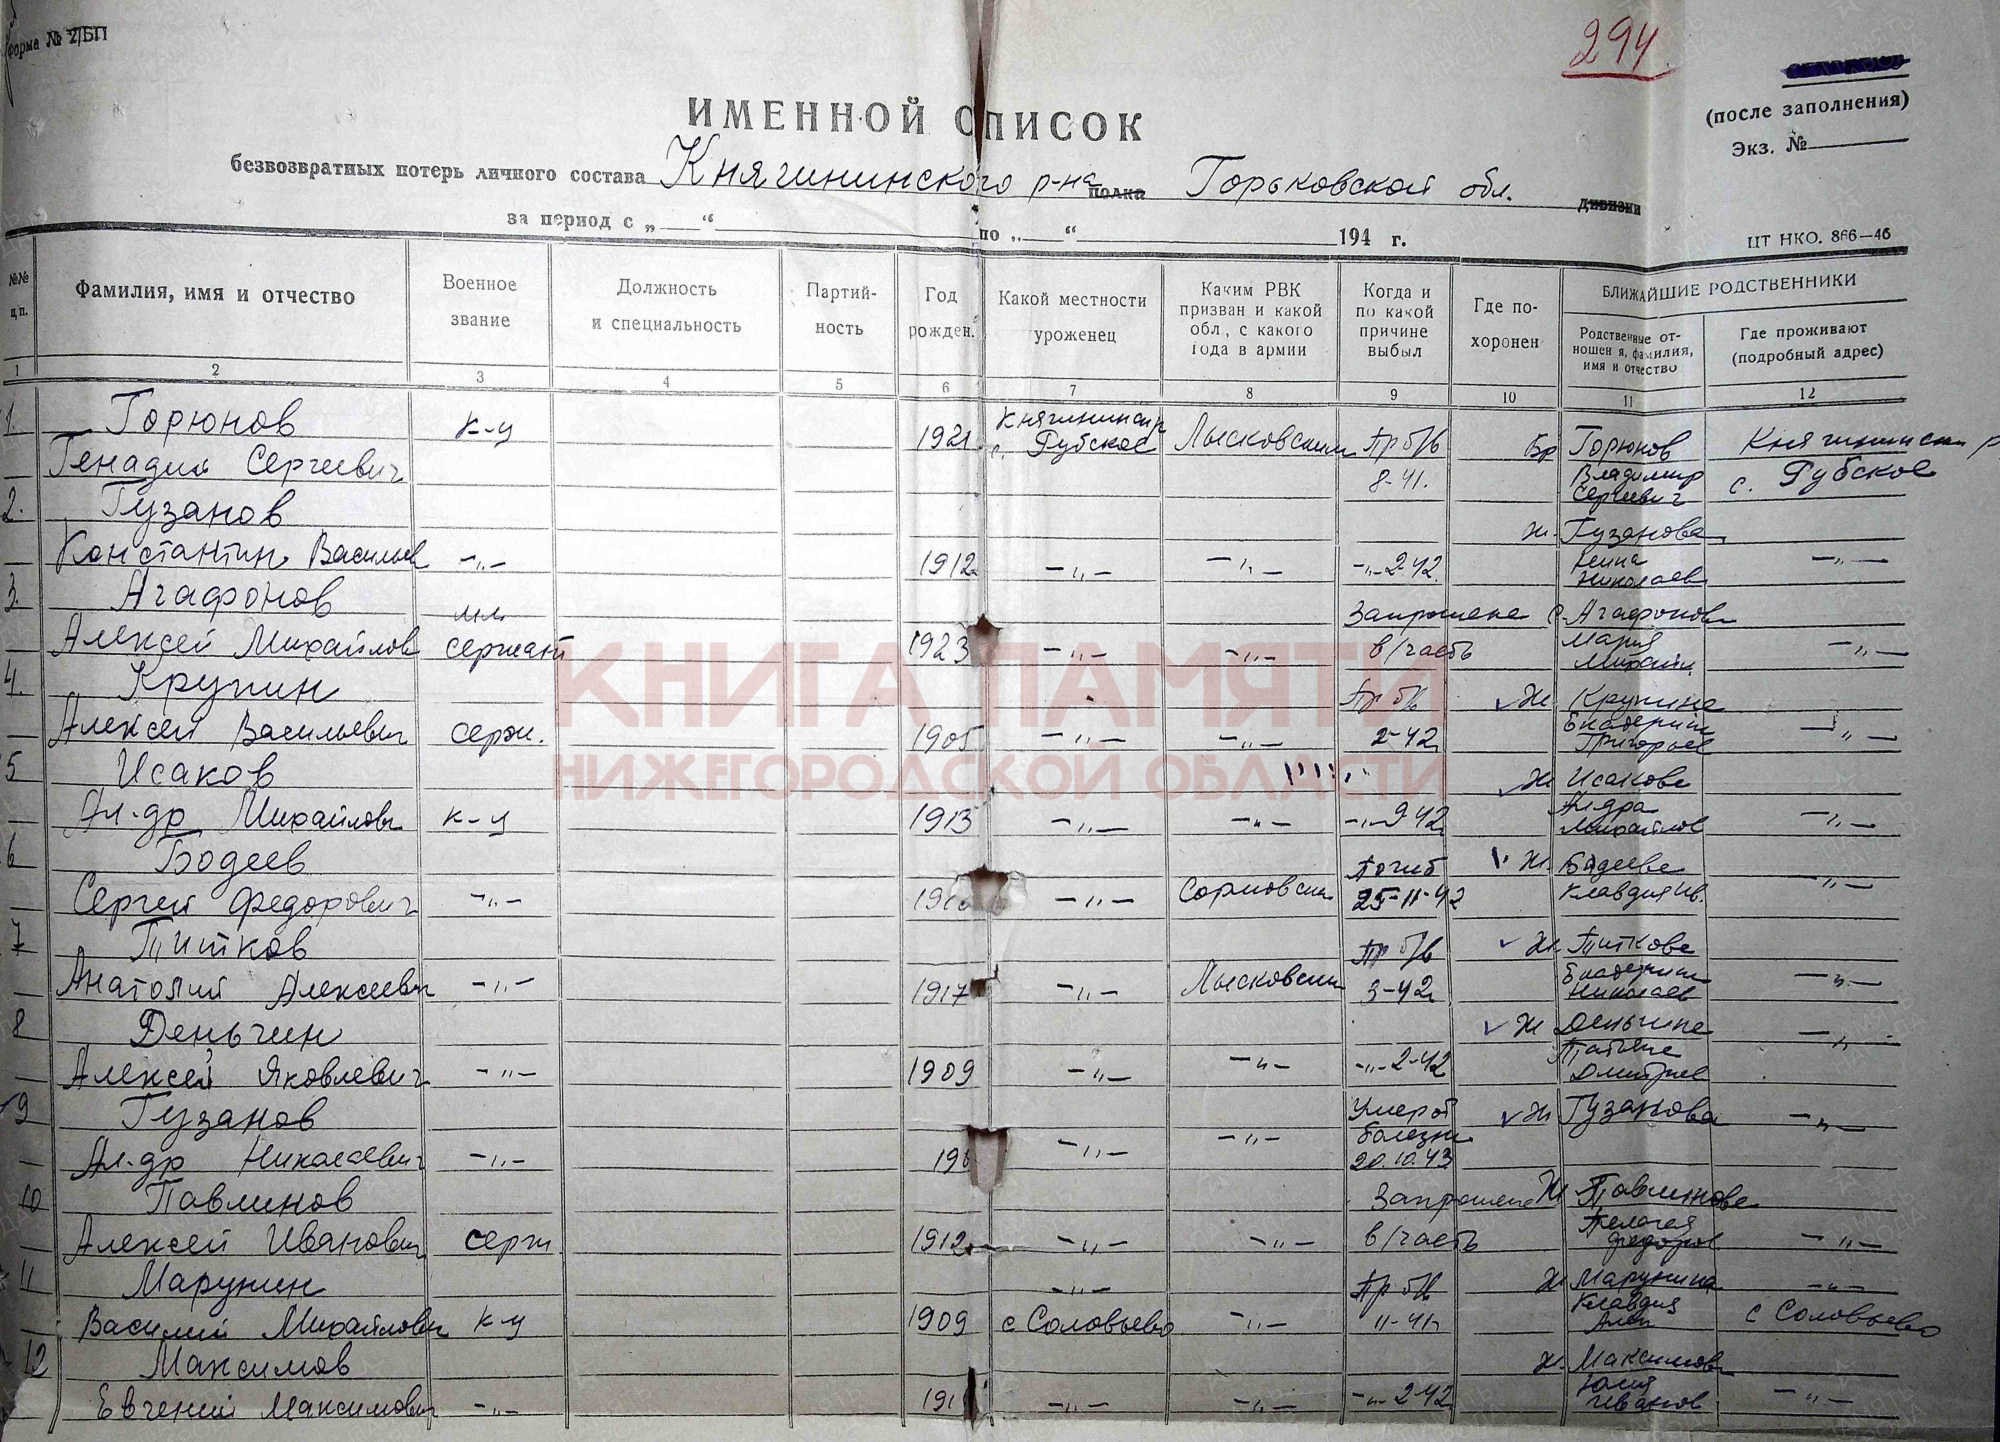 Форма № 2/БП
294
ИМЕННОЙ СПИСОК
(после заполнения)
Экз. №
безвозвратных потерь личного состава Княгининского р-на полка Горьковской обл. дивизии
за период с „ “ по „ “ 194 г.
ЦТ НКО. 866—46
№№ п/п.
Фамилия, имя и отчество
Военное звание
Должность и специальность
Партий-ность
Год рожден.
Какой местности уроженец
Каким РВК призван и какой обл, с какого года в армии
Когда и по какой причине выбыл
Где по-хоронен
БЛИЖАЙШИЕ РОДСТВЕННИКИ
Родственные от-ношения, фамилия, имя и отчество
Где проживают (подробный адрес)
1 2 3 4 5 6 7 8 9 10 11 12
1. Горюнов к-ц 1921 Княгининск р Лысковским Пр б/в Бр Горюнов Княгининск р
Генадий Сергеевич с. Рубское 8-41. Владимир Сергеевич с. Рубское
2. Гузанов ж. Гузанова
Константин Васильев -"- 1912 -"- -"- -"-2-42. Николаев -"-
3. Агафонов мл. Запрошена с. Агафонов
Алексей Михайлов сержант 1923 -"- -"- в/часть Мария Михайл. -"-
4. Крупин Пр б/в ж Крупина
Алексей Васильевич серж. 1905 -"- -"- 2-42 Екатерин Григорьев -"-
5 Исаков ж Исакова
Ал-др Михайлович к-ц 1913 -"- -"- -"-9 42 Ал-дра Михайлов -"-
6 Бодеев Погиб ж. Бадеева
Сергей Федорович -"- -"- Сормовским 25-11-42 Клавдия Ив. -"-
7 Титков Пр б/в ж Титкова
Анатолий Алексеевич -"- 1917 -"- Лысковским 3-42 Екатерин Николаев -"-
8 Деньгин ж Деньгина
Алексей Яковлевич -"- 1909 -"- -"- -"-2-42 Татьяна Дмитриев -"-
9 Гузанов Умер от ж Гузанова -"-
Ал-др Николаевич -"- -"- -"- болезни 20.10.43
10 Павлинов Запрошена ж Павлинова
Алексей Иванович серж. 1912 -"- -"- в/часть Пелагея Федоров -"-
11 Марунин -"- Пр б/в ж Марунина -"-
Василий Михайлович к-ц 1909 с Соловьево -"- 11-41 Клавдия Алек с Соловьево
12 Максимов ж. Максимов
Евгений Максимович -"- -"- -"- -"-2-42 Юлия Иванов -"-
КНИГА ПАМЯТИ
НИЖЕГОРОДСКОЙ ОБЛАСТИ